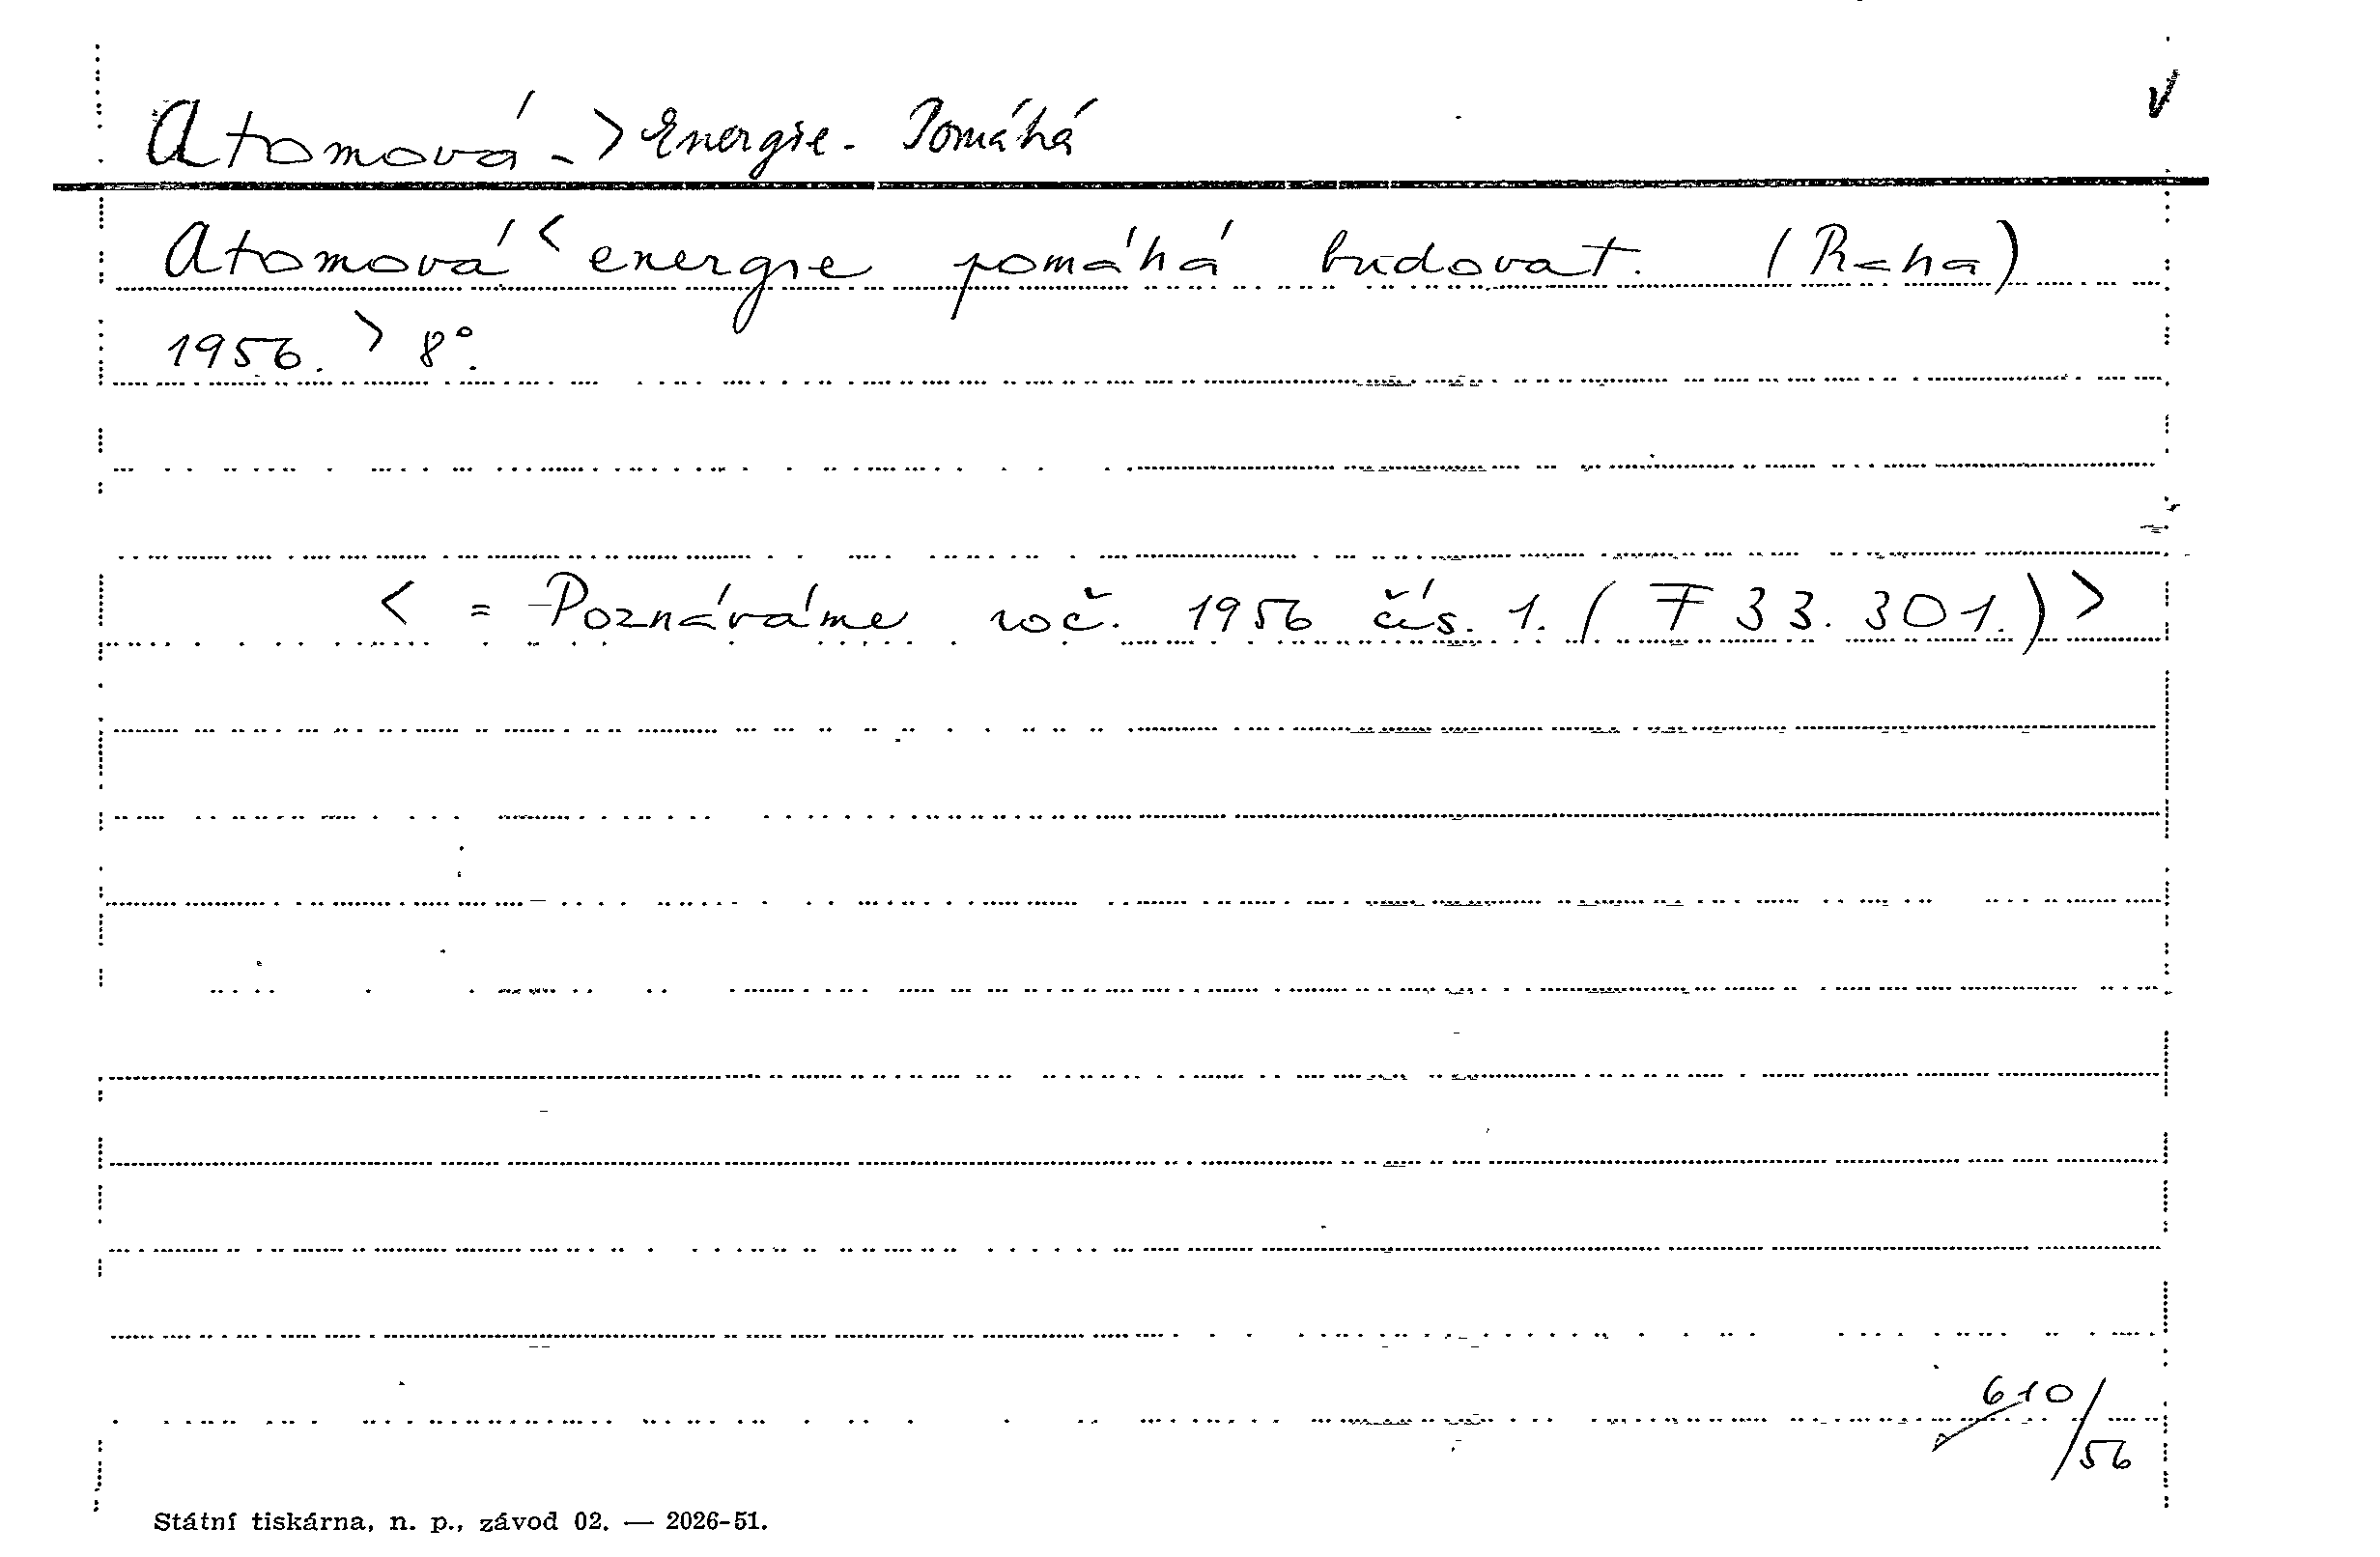 Atomová - > Energie - Pomáhá
Atomová < energie pomáhá budovat. (Praha)
1956. > 8°.
< = Poznáváme roč. 1956 čís. 1. (F 33.301.) >
610/56
Státní tiskárna, n. p., závod 02. — 2026-51.